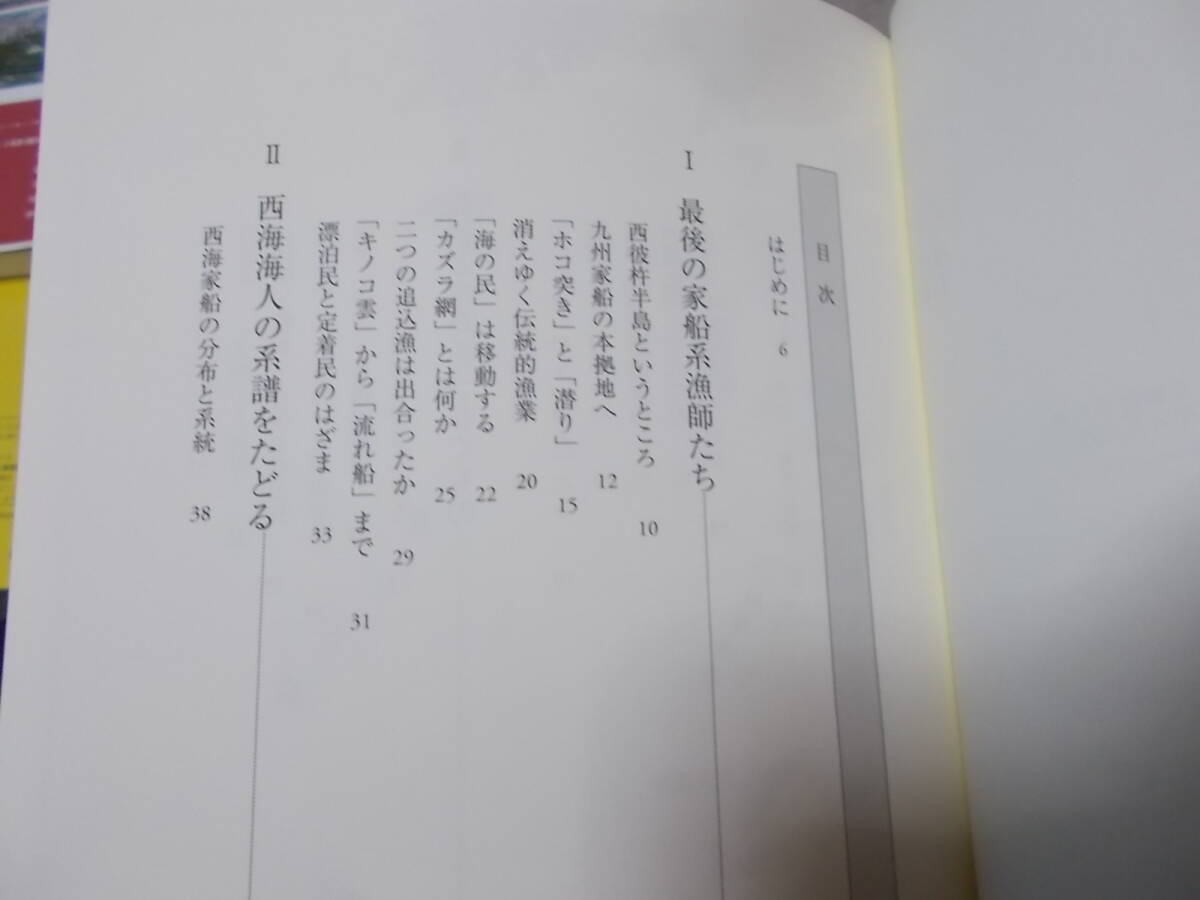 目次
はじめに 6
I 最後の家船系漁師たち
西彼杵半島というところ 10
九州家船の本拠地へ 12
「ホコ突き」と「潜り」 15
消えゆく伝統的漁業 20
「海の民」は移動する 22
「カズラ網」とは何か 25
二つの追込漁は出合ったか 29
「キノコ雲」から「流れ船」まで 31
漂泊民と定着民のはざま 33
II 西海海人の系譜をたどる
西海家船の分布と系統 38